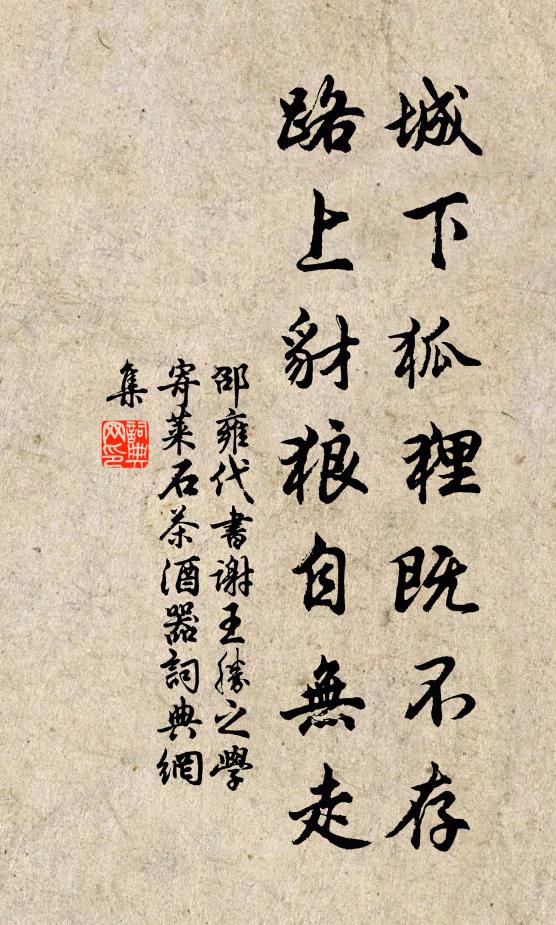 城下狐狸既不存
路上豺狼自無走
邵雍代書謝王勝之學
寄萊石茶酒器詞典網
集
詞典
网印